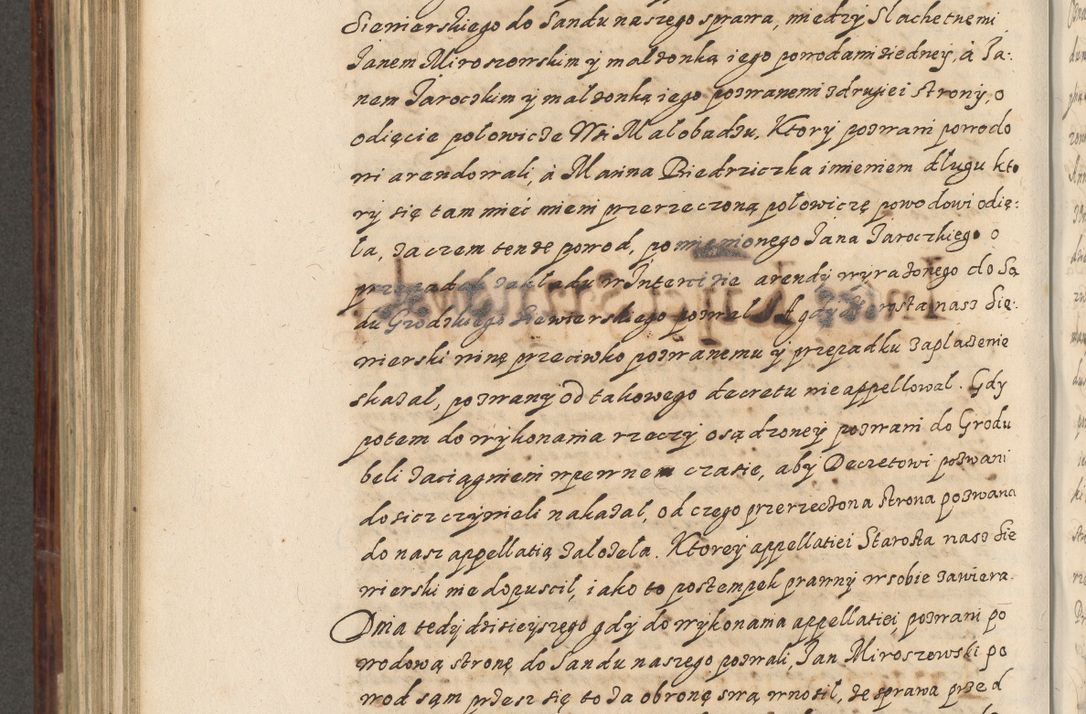 Siewierskiego do Sandu naszego sprawa, miedzy Slachetnemi
Janem Miroszowskim y malzonką iego powodami ziedney, a Ja:
nem Jaroczkim y malzonką iego pozwanemi zdrugiei strony, o
odięcie polowicze Wsi Malobadzu, Ktory pozwani powodo
wi arendowali, a Marina Biedrziczka imieniem długu kto
ry się tam mieć mieni przerzeczoną połowiczę powodowi odię:
la, zaczem tenże powod, pomienionego Jana Jaroczkiego o
przepadek zakładu w Intercizie arendy wyrażonego do Są
du Grodzkiego Siewierskiego pozwal. A gdy Starosta nasz Sie:
wierski winę przeciwko pozwanemu y przepadku zaplacenie
skazal, pozwany od takowego decretu nie appellowal. Gdy
potem do wykonania rzeczy osądzoney pozwani do Grodu
beli zaciągnieni w pewnem czasie, aby Decretowi pozwani
dosicz czynieli nakazal, od czego przerzeczona strona pozwana
do nasz appellatią zalożela. Ktorey appellatiei Starosta nasz Sie
wierski nie dopuscil, iako to postempek prawny w sobie zawiera.
Dnia tedy dzisieyszego gdy do wykonania appellatiei pozwani po
wodową stronę do Sandu naszego pozwali, Jan Miroszewski po
wod sąm przesz się to za obronę swą wnosil, że sprawa przed